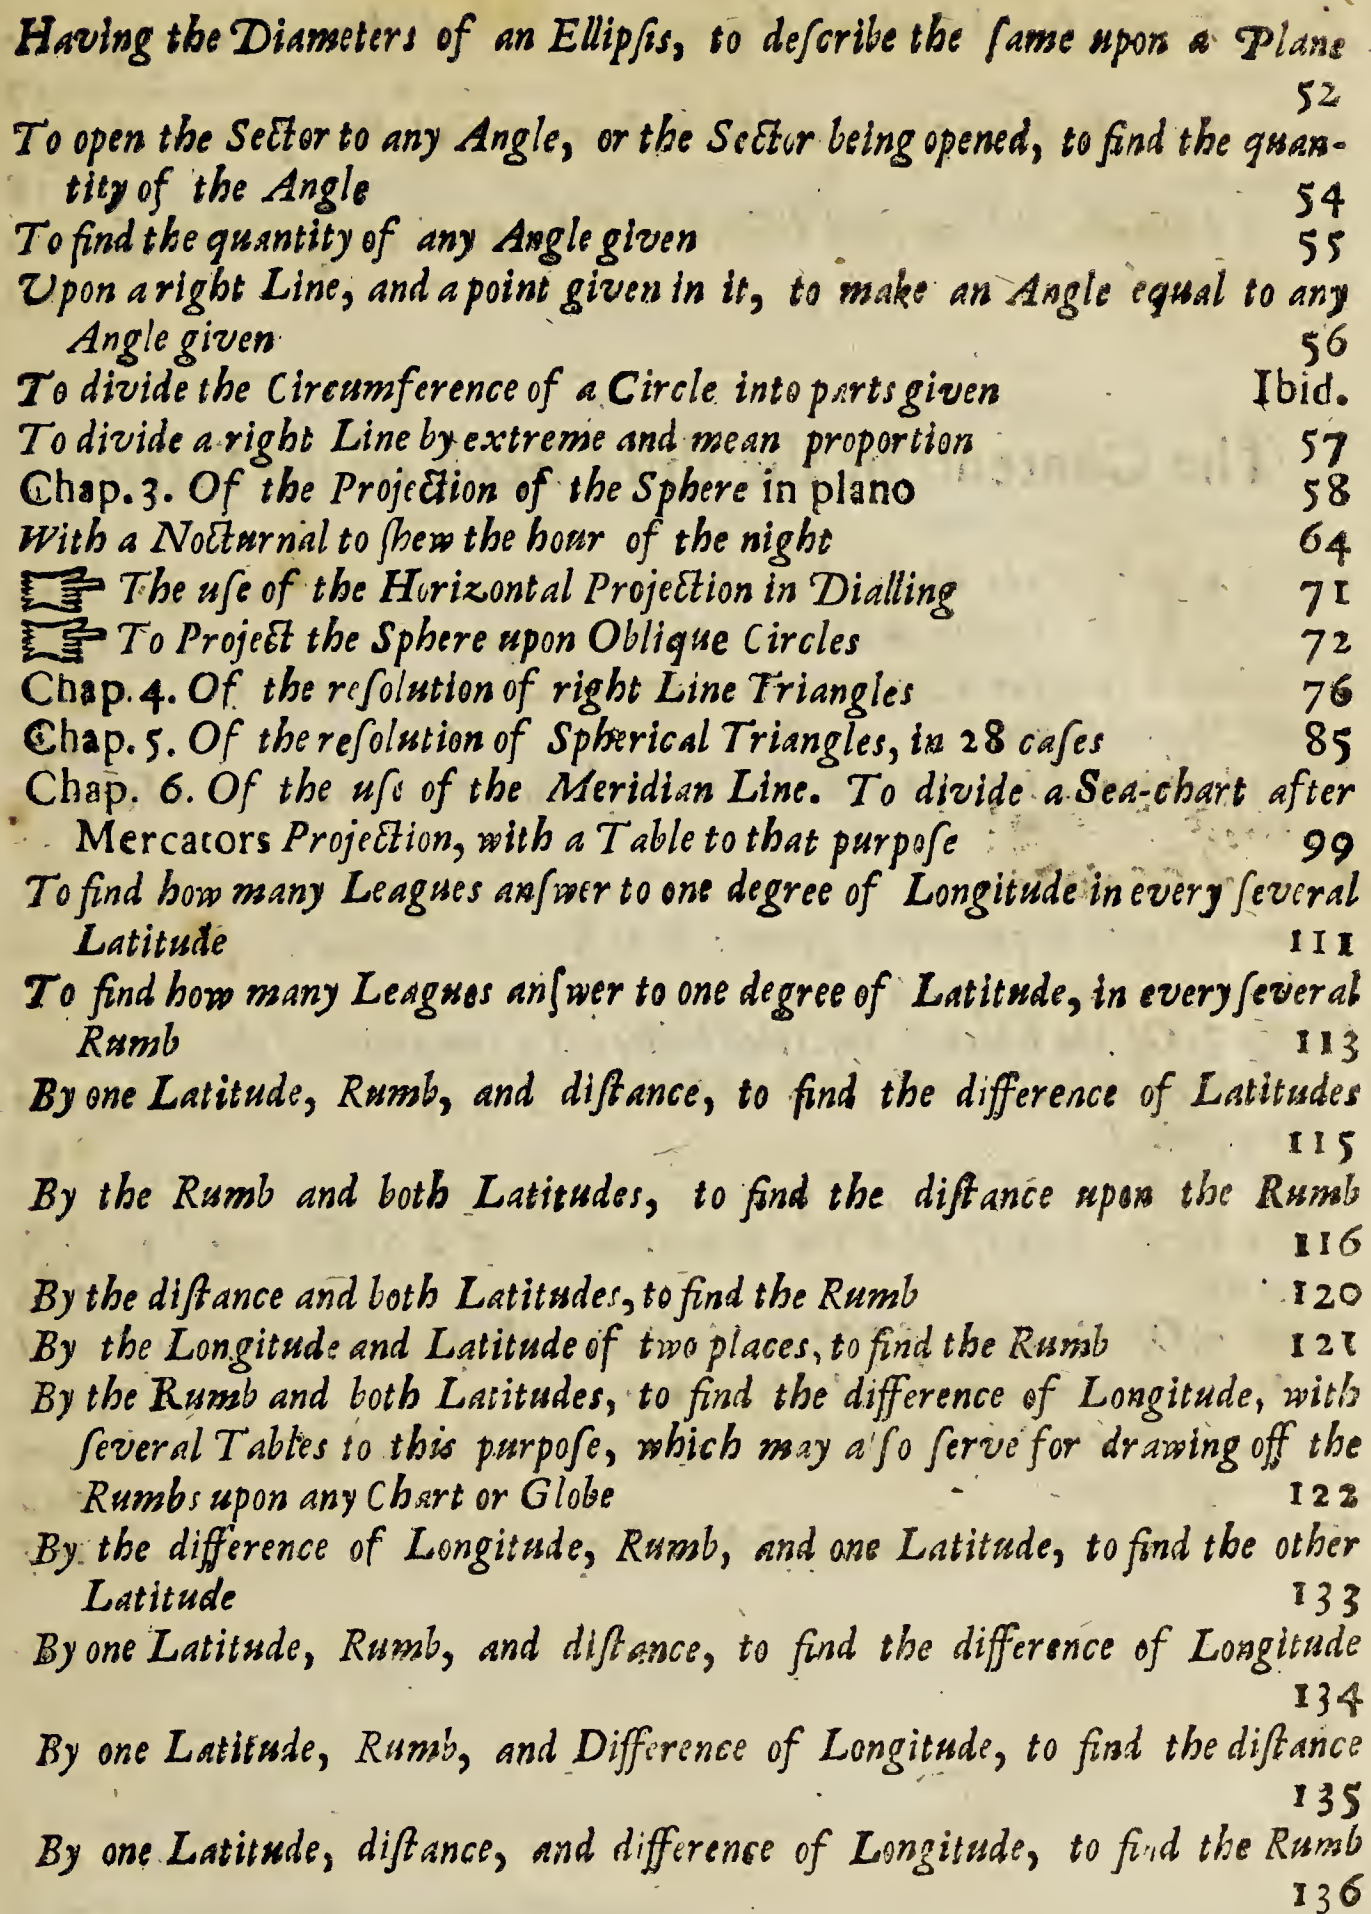 Having the Diameters of an Ellipſis, to deſcribe the ſame upon a Plane
52
To open the Sector to any Angle, or the Sector being opened, to find the quan-
tity of the Angle 54
To find the quantity of any Angle given 55
Upon a right Line, and a point given in it, to make an Angle equal to any
Angle given 56
To divide the Circumference of a Circle into parts given Ibid.
To divide a right Line by extreme and mean proportion 57
Chap. 3. Of the Projection of the Sphere in plano 58
With a Nocturnal to ſhew the hour of the night 64
☞ The uſe of the Horizontal Projection in Dialling 71
☞ To Project the Sphere upon Oblique Circles 72
Chap. 4. Of the reſolution of right Line Triangles 76
Chap. 5. Of the reſolution of Spherical Triangles, in 28 caſes 85
Chap. 6. Of the uſe of the Meridian Line. To divide a Sea-chart after
Mercators Projection, with a Table to that purpoſe 99
To find how many Leagues anſwer to one degree of Longitude in every ſeveral
Latitude 111
To find how many Leagues anſwer to one degree of Latitude, in every ſeveral
Rumb 113
By one Latitude, Rumb, and diſtance, to find the difference of Latitudes
115
By the Rumb and both Latitudes, to find the diſtance upon the Rumb
116
By the diſtance and both Latitudes, to find the Rumb 120
By the Longitude and Latitude of two places, to find the Rumb 121
By the Rumb and both Latitudes, to find the difference of Longitude, with
ſeveral Tables to this purpoſe, which may a'ſo ſerve for drawing off the
Rumbs upon any Chart or Globe 122
By the difference of Longitude, Rumb, and one Latitude, to find the other
Latitude 133
By one Latitude, Rumb, and diſtance, to find the difference of Longitude
134
By one Latitude, Rumb, and Difference of Longitude, to find the diſtance
135
By one Latitude, diſtance, and difference of Longitude, to find the Rumb
136